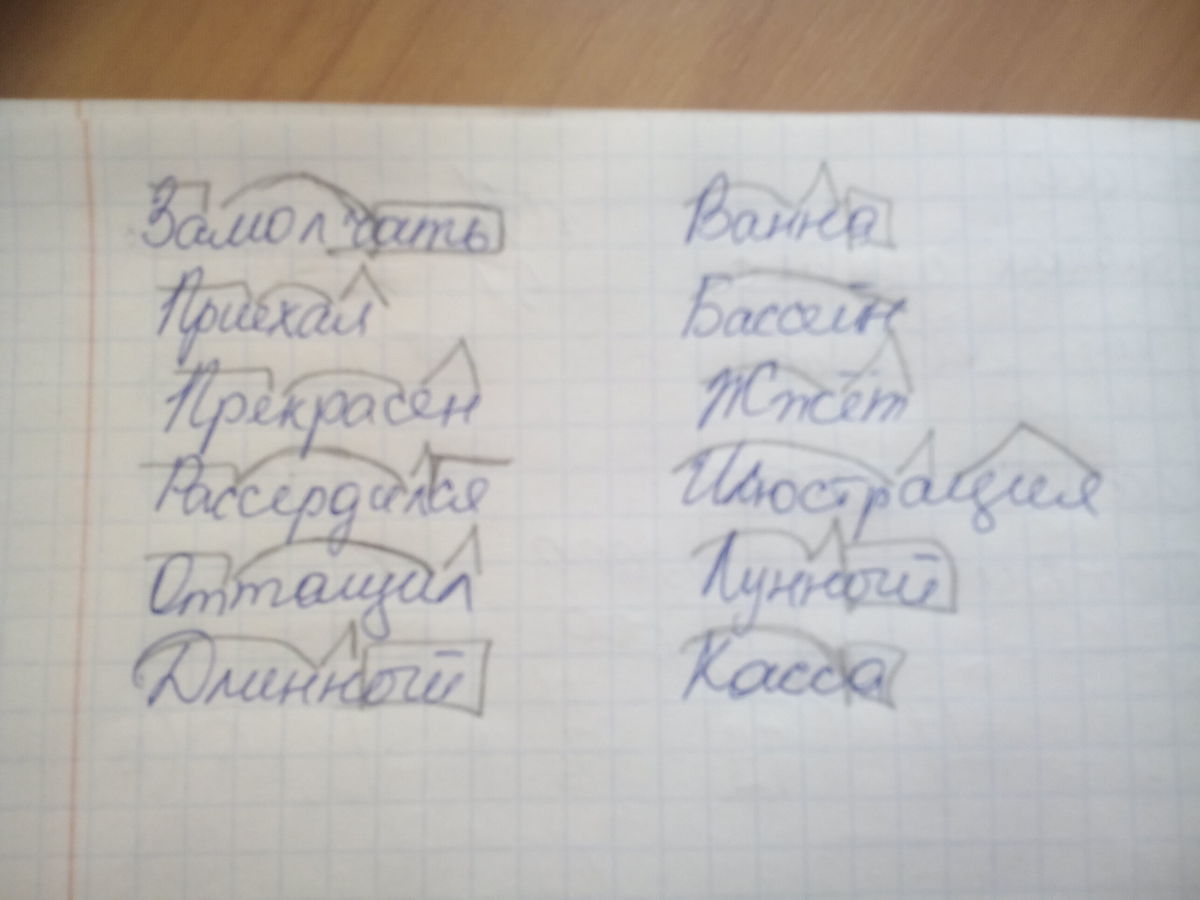 Замолчать
Приехал
Прекрасен
Рассердился
Оттащил
Длинный
Ванна
Бассейн
Жжёт
Илюстрация
Лунный
Касса